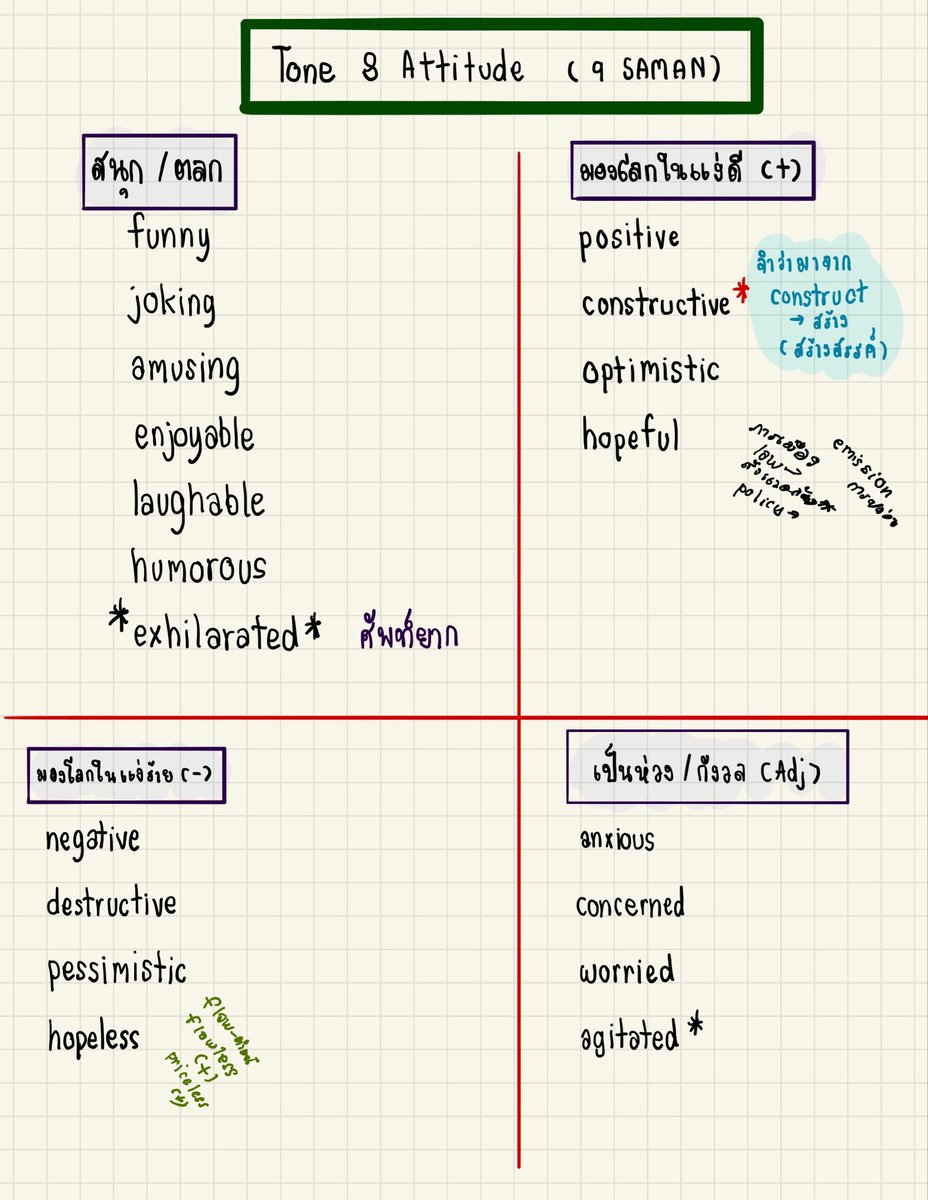 Tone & Attitude (9 SAMAN)
สนุก / ตลก
funny
joking
amusing
enjoyable
laughable
humorous
*exhilarated* ศัพท์ยาก
มองโลกในแง่ดี (+)
positive
constructive*
optimistic
hopeful
จำว่ามาจาก
construct
→ สร้าง
(สร้างสรรค์)
การเมือง
policy →
emission
การปล่อย
มองโลกในแง่ร้าย (-)
negative
destructive
pessimistic
hopeless
flaw-ตำหนิ
flawless
(+)
priceless
(+)
เป็นห่วง / กังวล (Adj)
anxious
concerned
worried
agitated*